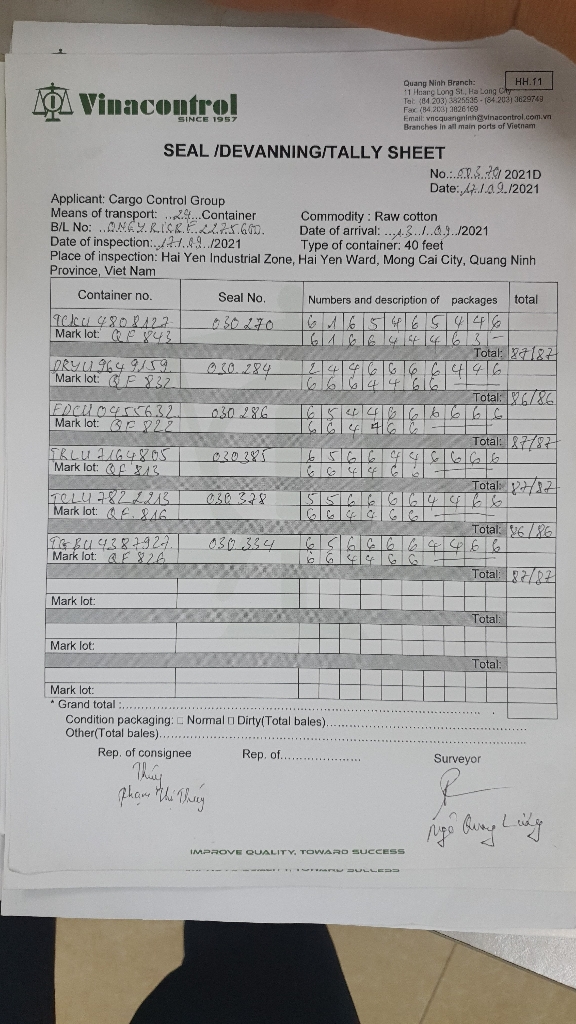 Vinacontrol
SINCE 1957
Quang Ninh Branch:
HH.11
11 Hoang Long St., Ha Long City
Tel: (84.203) 3825535 - (84.203) 3829749
Fax: (84.203) 3826169
Email: vncquangninh@vinacontrol.com.vn
Branches in all main ports of Vietnam
SEAL /DEVANNING/TALLY SHEET
No.: 2021D
Date: 17/09/2021
Applicant: Cargo Control Group
Means of transport: 24 Container
Commodity : Raw cotton
B/L No:
Date of arrival: 13/09/2021
Date of inspection: 17/09/2021
Type of container: 40 feet
Place of inspection: Hai Yen Industrial Zone, Hai Yen Ward, Mong Cai City, Quang Ninh
Province, Viet Nam
Container no. Seal No. Numbers and description of packages total
4808122 030270 6 1 6 5 4 6 5 4 4 6
Mark lot: QF 843 6 1 6 6 4 4 4 6 3 -
Total: 87/87
DRYU 9649159 030.284 2 4 4 6 6 6 6 4 4 6
Mark lot: QF 832 6 6 6 4 4 6 6
Total: 86/86
FDCU 0455632 030286 6 5 4 4 6 6 6 6 6 6
Mark lot: QF 822 6 6 4 4 6 6
Total: 87/87
TRLU 7164805 030385 6 5 6 6 4 4 6 6 6 6
Mark lot: QF 813 6 6 4 4 6 6
Total: 87/87
TCLU 7822213 030378 5 5 6 6 6 6 4 4 6 6
Mark lot: QF. 816 6 6 4 4 6 6
Total: 86/86
4387927 030.334 6 5 6 6 6 6 4 4 6 6
Mark lot: QF 826 6 6 4 4 6 6
Total: 87/87
Mark lot:
Total:
Mark lot:
Total:
Mark lot:
* Grand total :
Condition packaging: □ Normal □ Dirty(Total bales)
Other(Total bales)
Rep. of consignee Rep. of Surveyor
Thúy
Phạm Thị Thúy
Ngô Quang
IMPROVE QUALITY, TOWARD SUCCESS